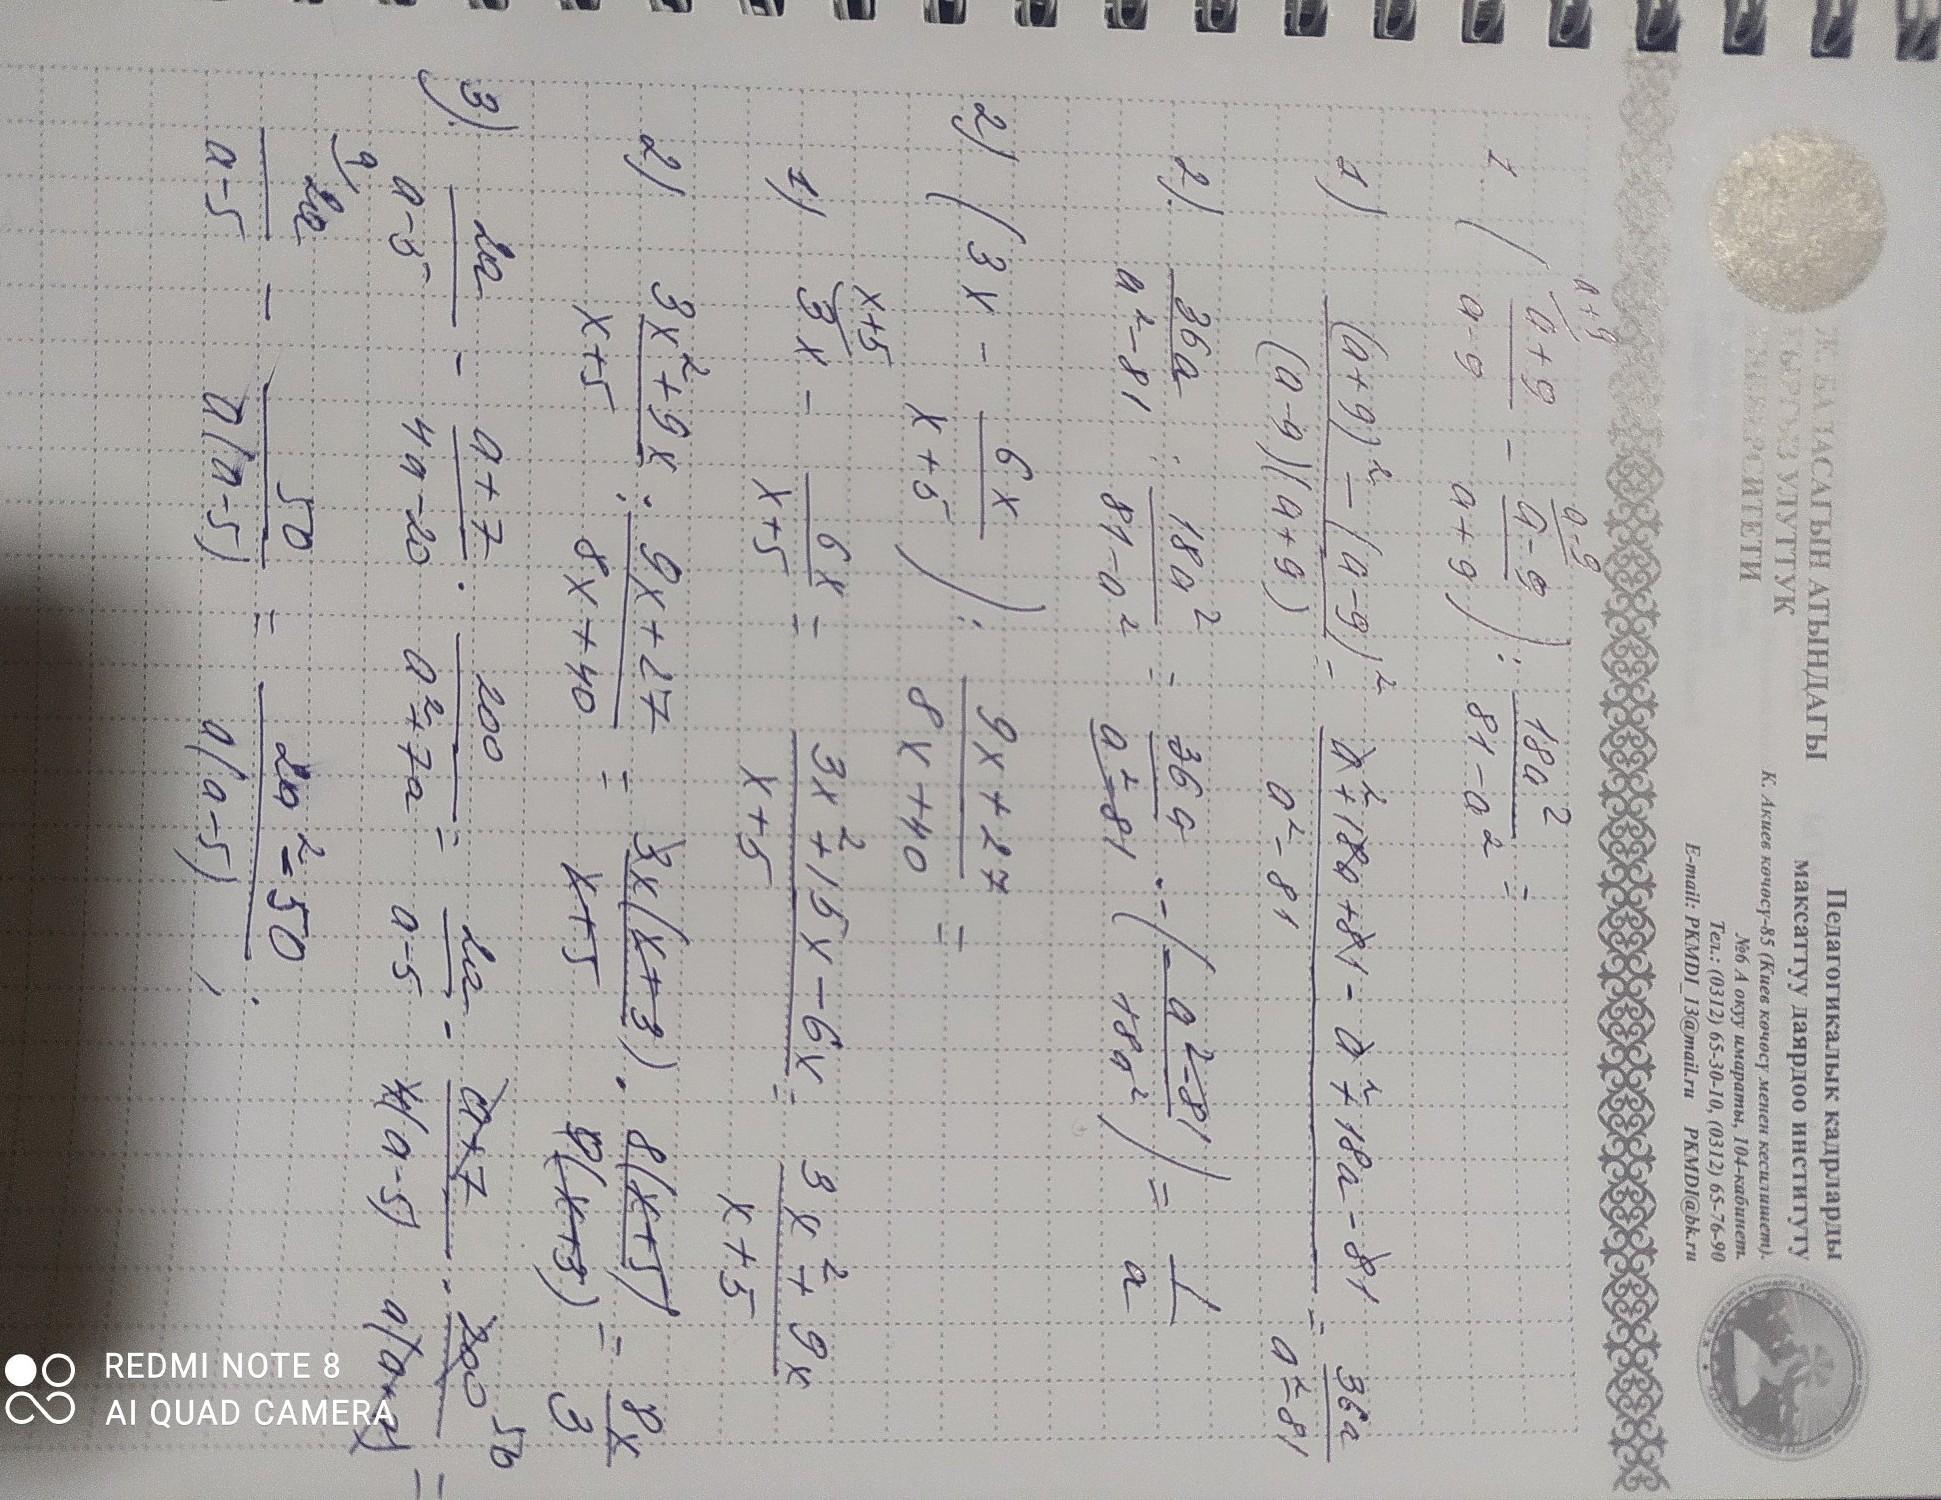 Ж. БАЛАСАГЫН АТЫНДАГЫ
КЫРГЫЗ УЛУТТУК
УНИВЕРСИТЕТИ
Педагогикалык кадрларды
максаттуу даярдоо институту
К. Акиев көчөсү-85 (Киев көчөсү менен кесилишет).
№6 А окуу имараты, 104-кабинет.
Тел.: (0312) 65-30-10, (0312) 65-76-90
E-mail: PKMDI_13@mail.ru PKMDI@bk.ru
1 ( a+9/ (a+9)/(a-9) - a-9/ (a-9)/(a+9) ) : 18a²/(81-a²) =
1) ((a+9)² - (a-9)²)/((a-9)(a+9)) = (a²+18a+81-a²+18a-81)/(a²-81) = 36a/(a²-81)
2). 36a/(a²-81) : 18a²/(81-a²) = 36a/(a²-81) · (-(a²-81)/18a²) = 1/a
2) (3x - 6x/(x+5)) : (9x+27)/(8x+40) =
1) x+5/ 3x - 6x/(x+5) = (3x²+15x-6x)/(x+5) = (3x²+9x)/(x+5)
2) (3x²+9x)/(x+5) : (9x+27)/(8x+40) = 3x(x+3)/(x+5) · 8(x+5)/9(x+3) = 8x/3
3). 2a/(a-5) - (a+7)/(4a-20) · 200/(a²+7a) = 2a/(a-5) - (a+7)/4(a-5) · 200 50/a(a+7) =
a/ 2a/(a-5) - 50/a(a-5) = (2a²-50)/a(a-5) ;
REDMI NOTE 8
AI QUAD CAMERA